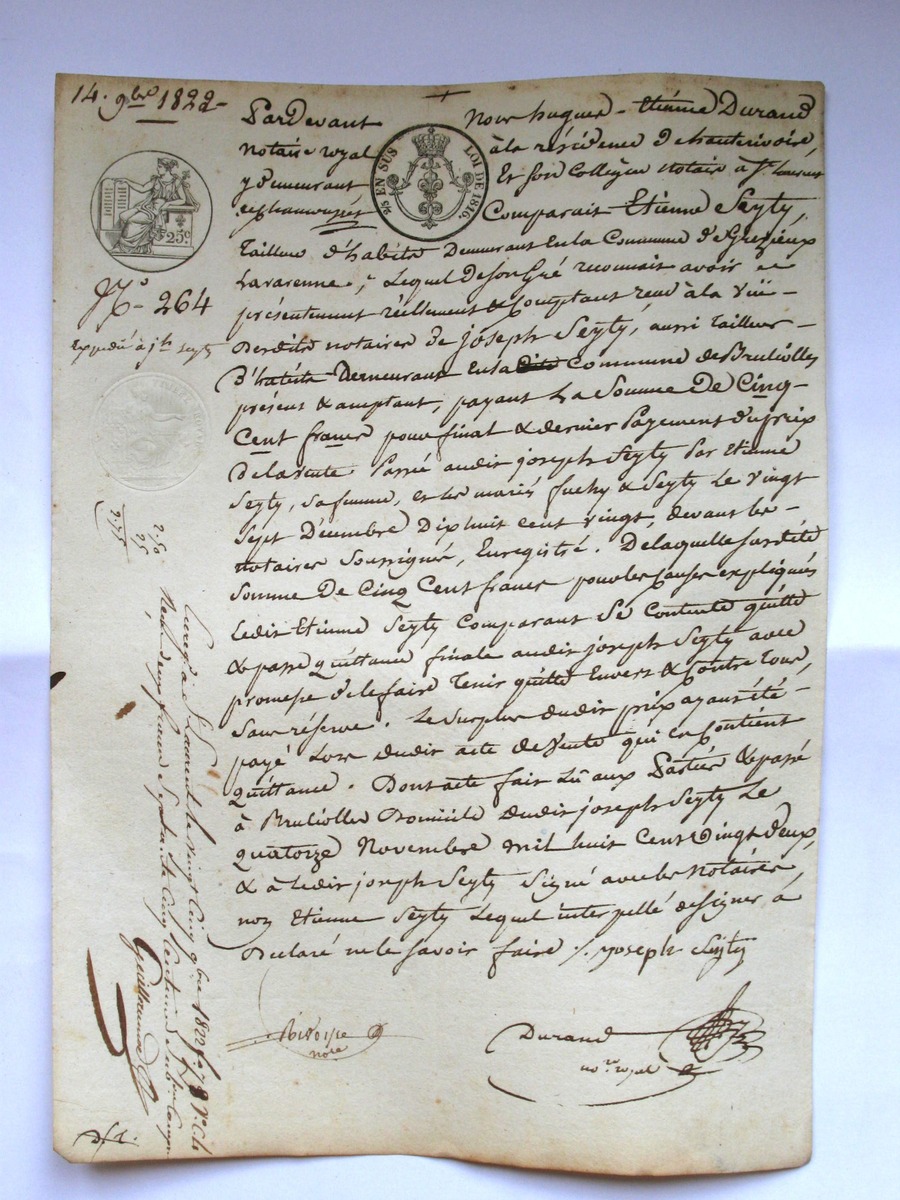 14. 9bre 1822
Pardevant Nous hugues Etienne Durand
notaire royal à la résidence de chanterivoire,
y demeurant Et son Collégue notaire à St. Laurent
de chamousset Comparait Etienne Seyty,
25 EN SUS LOI DE 1816.
25c
Tailleur d'habits Demeurant En la Commune de Grezieux
Lavarenne; Lequel de son Gré reconnait avoir eu
présentement réellement & Comptant rend à la vüe
Desdits notaires de joseph Seyty, aussi tailleur
d'habits Demeurant En la Commune de Brulliolles
présent & acceptant, payant La Somme De Cinq
Cent francs pour final & dernier Payement du prix
De la vente Passée audit joseph Seyty Par Etienne
Seyty, sa femme, et les mariés fuchy & Seyty Le vingt
Sept Décembre Dixhuit cent vingt, devant les
notaires Soussignés, Enregistré. De laquelle susdite
Somme De Cinq Cent francs pour les causes expliquées
Ledit Etienne Seyty Comparant Se Contente quitte
& passe quittance finale audit joseph Seyty avec
promesse de le faire Tenir quitte Envers & Contre tous,
Sans réserve. Le Surplus dudit prix ayant été
payé Lors dudit acte de vente qui en Contient
quittance. Dont acte fait Lû aux Parties & passé
à Brulliolles Domicile dudit joseph Seyty Le
quatorze Novembre mil huit Cent Vingt Deux,
& à Ledit joseph Seyty Signé avec les notaires,
non Etienne Seyty Lequel interpellé de signer à
Déclaré ne le savoir faire ./. joseph Seyty
Durand
nore royal
nore
No. 264
Expédié à jh Seyty
2.50
25
2.75
Enreg. à St Laurent le vingt cinq 9bre 1822 fo 78 Vo C
Reçu deux francs Soixante quinze centimes
Guillaume